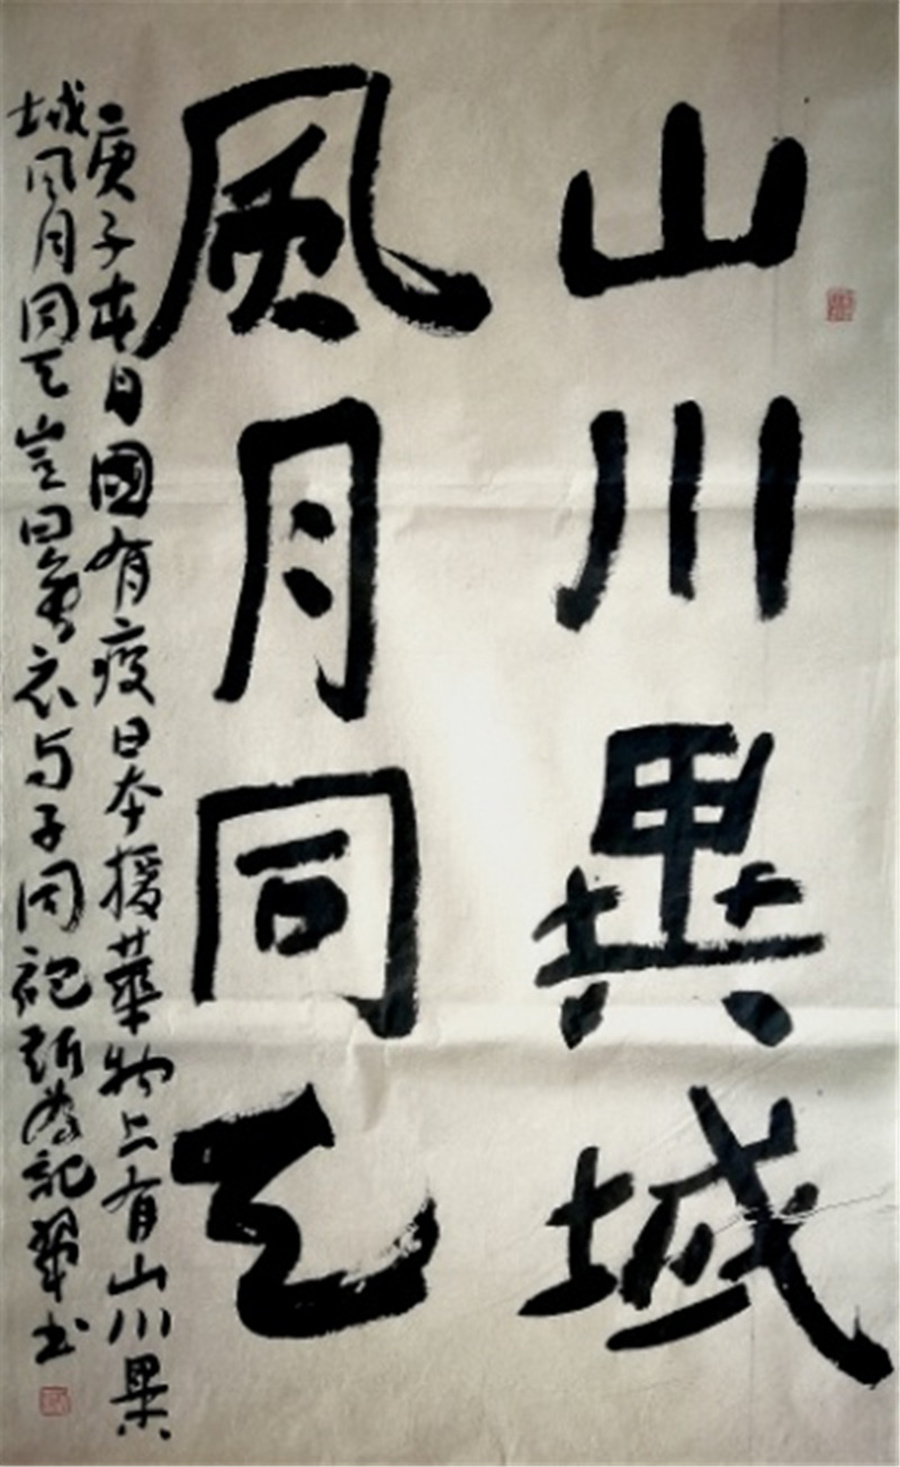 山川異域
風月同天
庚子春日國有疫日本援華物上有山川異
域风月同天豈曰無衣与子同袍為記书